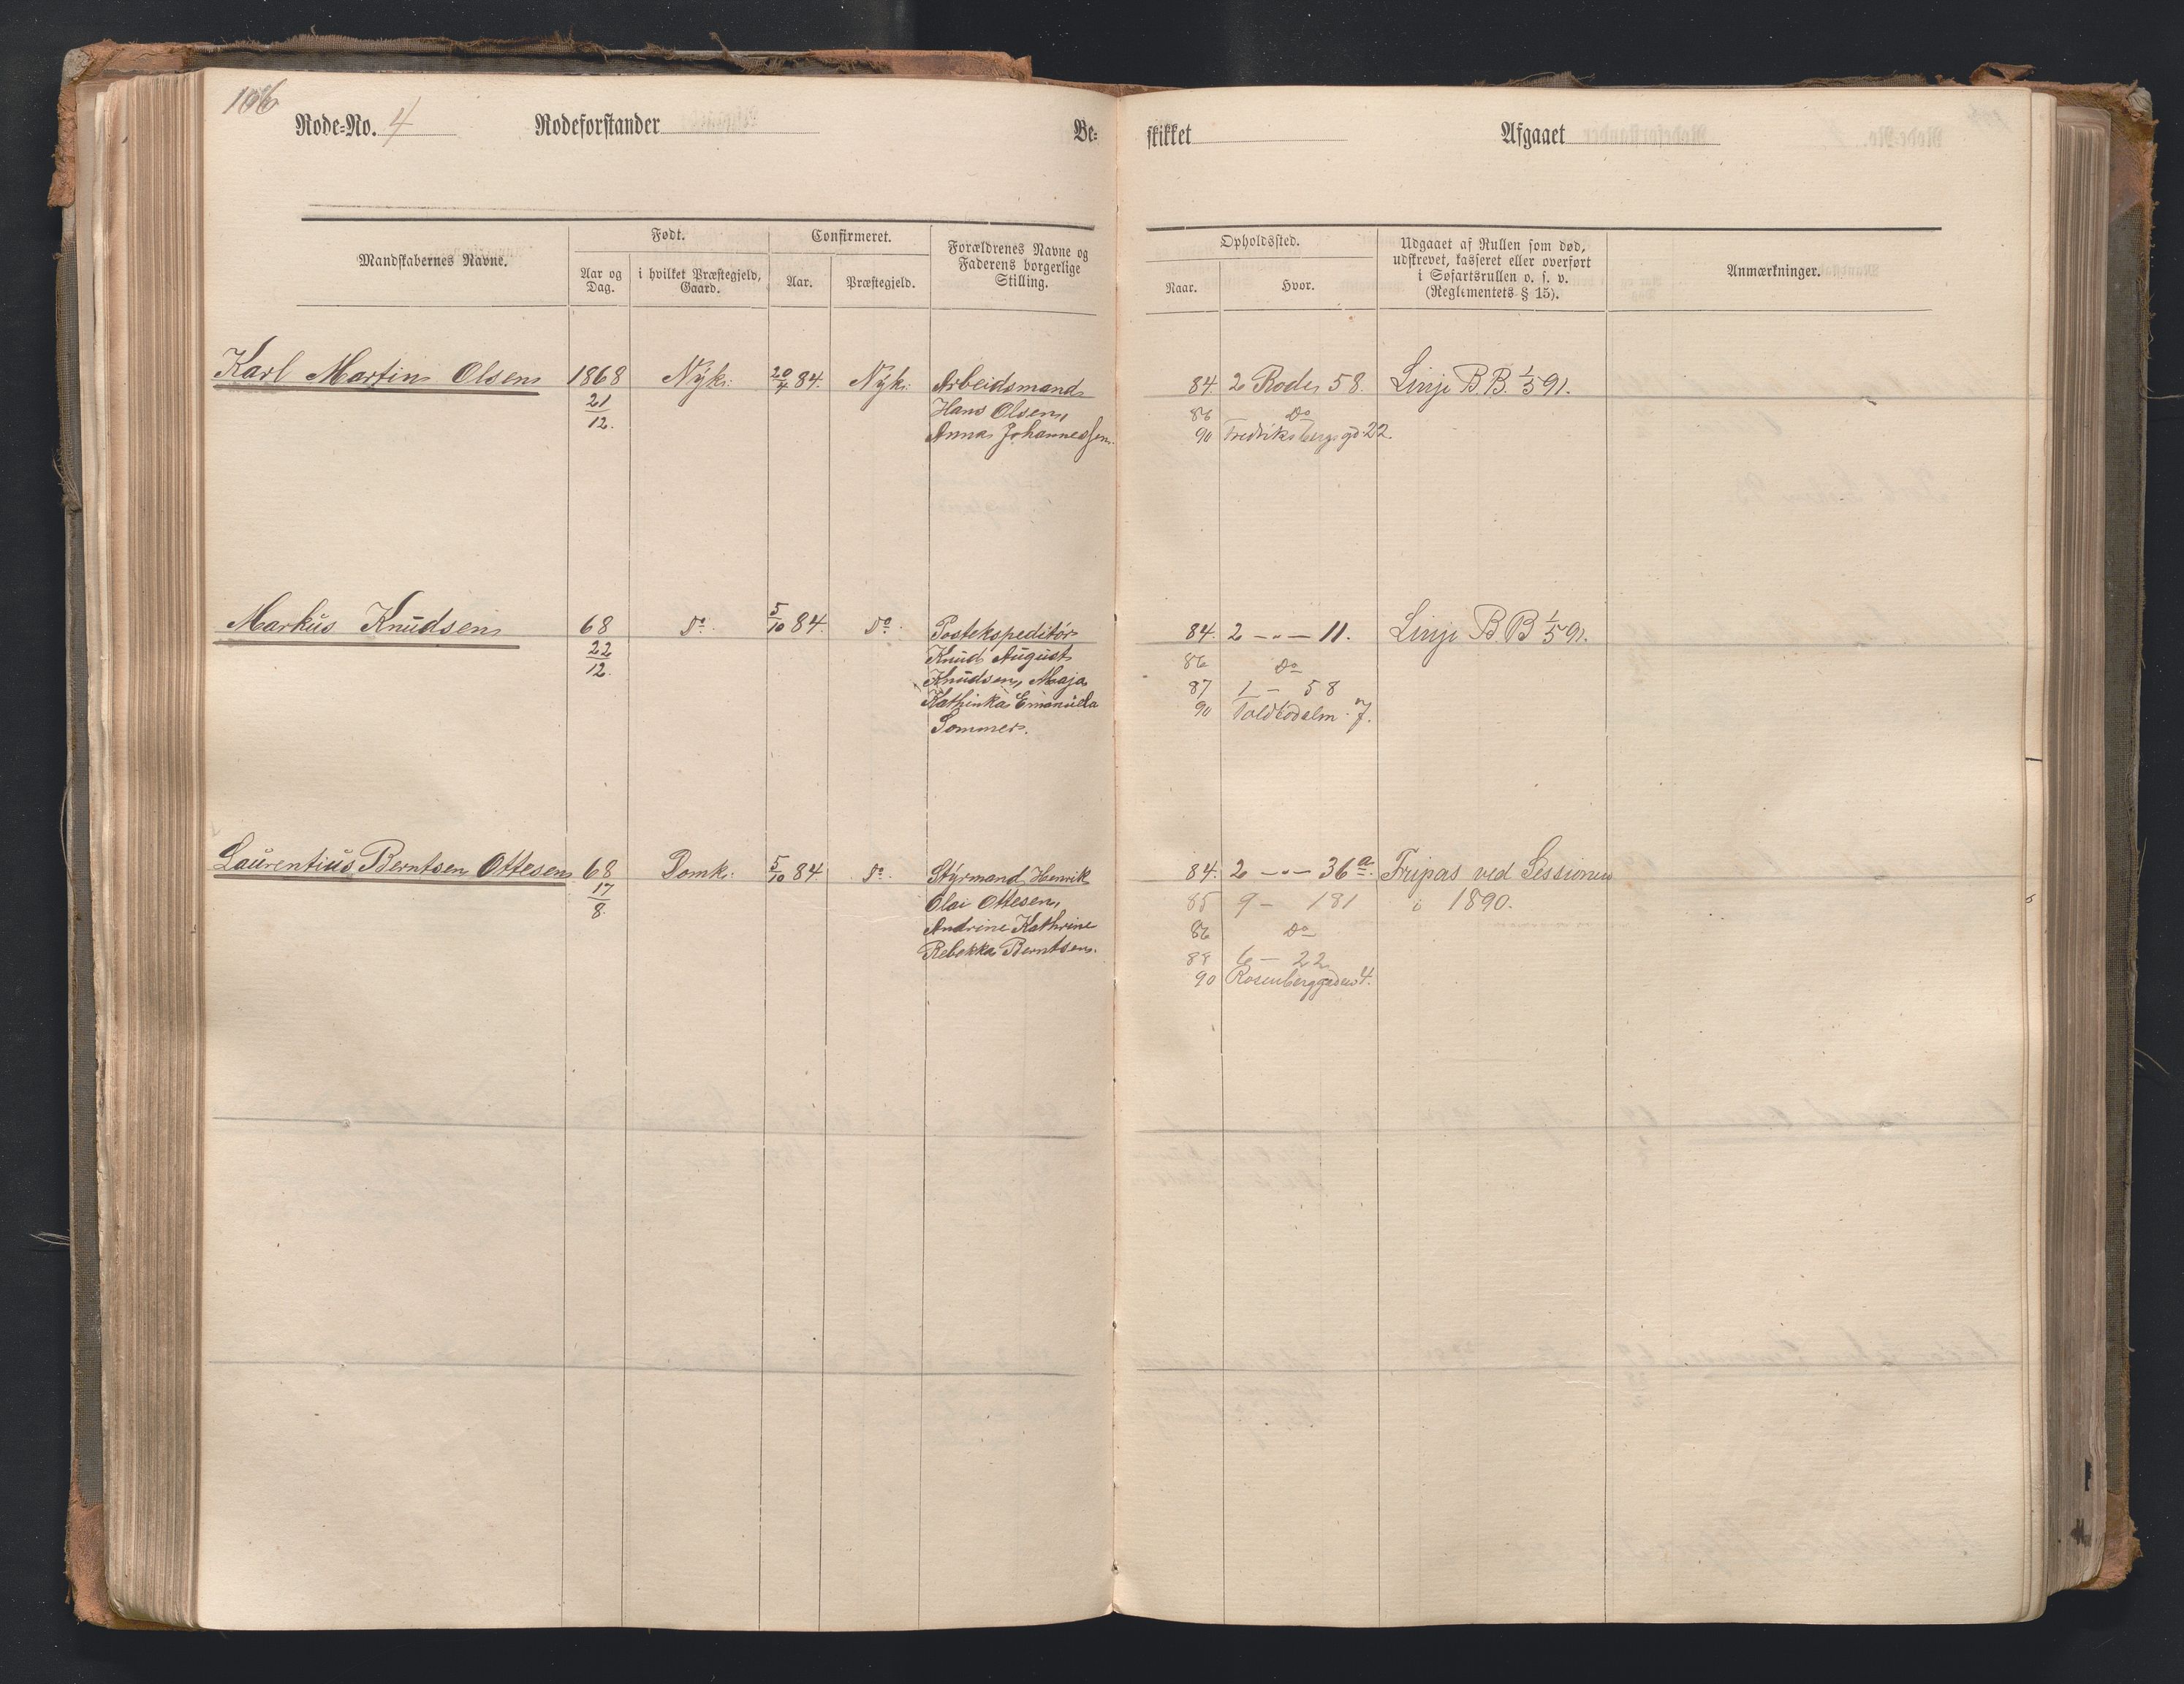 106
Rode-No. 4 Rodeforstander Be-
skikket Afgaaet
Mandskabernes Navne.
Født.
Aar og Dag.
i hvilket Præstegjeld, Gaard.
Confirmeret.
Aar.
Præstegjeld.
Forældrenes Navne og
Faderens borgerlige
Stilling.
Opholdssted.
Naar.
Hvor.
Udgaaet af Rullen som død,
udskrevet, kasseret eller overført
i Søfartsrullen o. s. v.
(Reglementets § 15).
Anmærkninger.
Karl Martin Olsen 1868 Nyk: 20/4 84. Nyk: Arbeidsmand 84. 2 Rode 58. Linje B.B. 1/5 91.
21/12. Hans Olsen, 86 Do
Anna Johannessen 90 Fredriksbergsgd 22.
Markus Knudsen 68 Do. 5/10 84. Do. Postekspeditør 84. 2 -"- 11. Linje B.B 1/5 91.
22/12. Knud August 86 Do
Knudsen, Maja 87 1 - 58
Kathinka Emanuela 90 Toldbodalm. 7.
Sommer.
Laurentius Berntsen Ottesen 68 Domk: 5/10 84. Do. Styrmand Henrik 84. 2 -"- 36a. Fripas ved Sessionen
17/8. Olai Ottesen, 85 9 - 181 i 1890.
Andrine Kathrine 86 Do
Rebekka Berntsen. 88 6 - 22
90 Rosenberggaden 4.